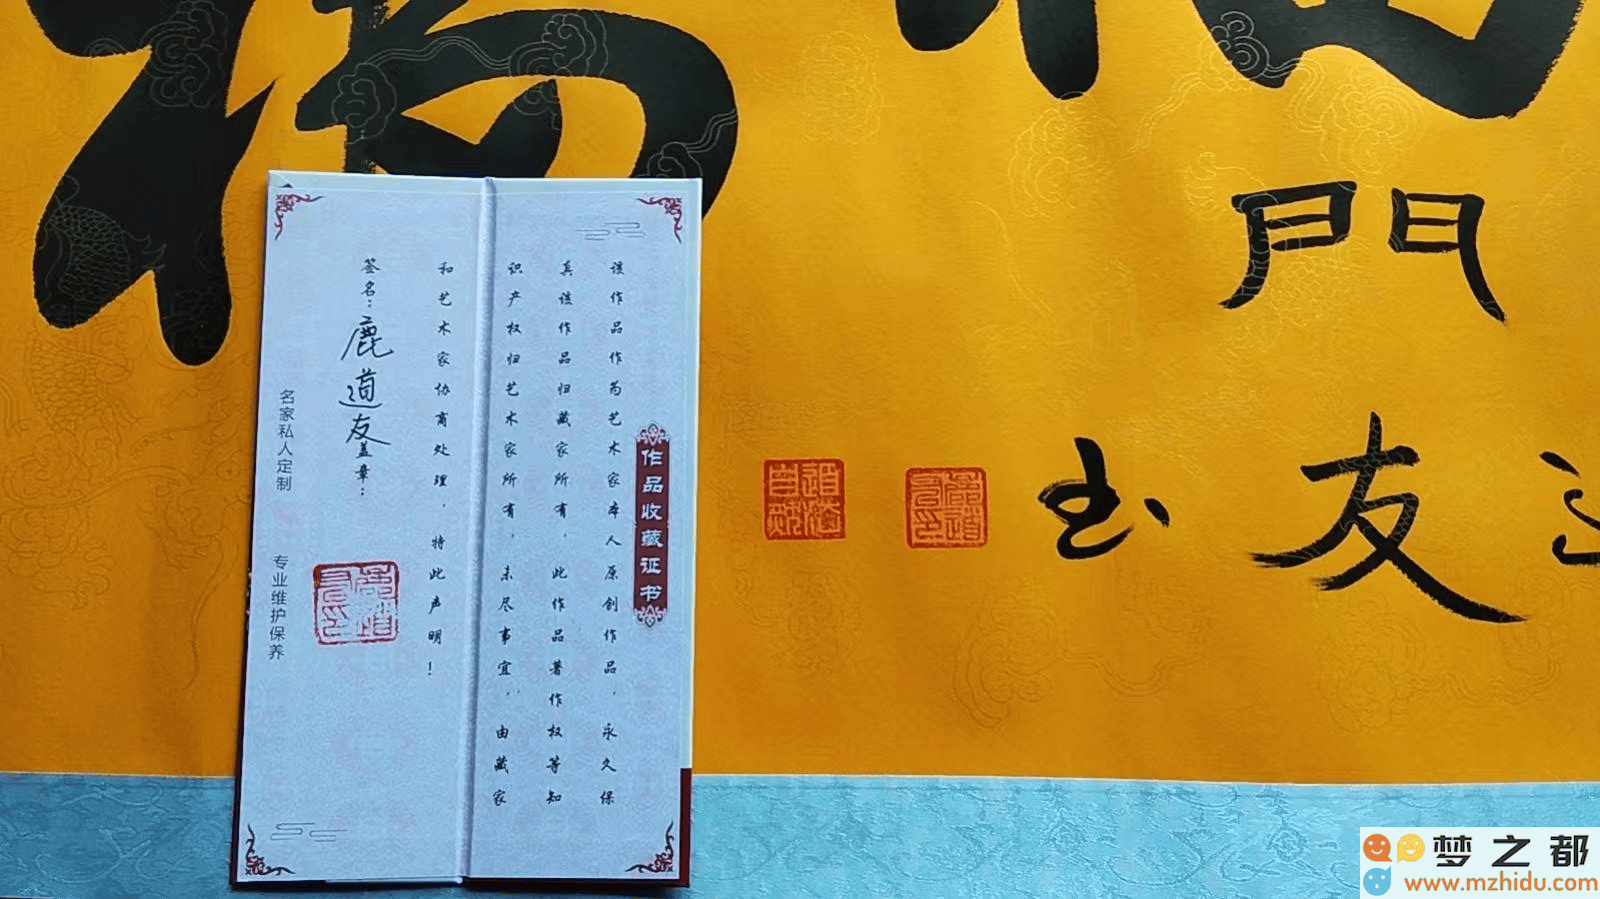 作品收藏证书
该作品作为艺术家本人原创作品，永久保
真该作品归藏家所有，此作品著作权等知
识产权归艺术家所有，未尽事宜，由藏家
和艺术家协商处理，特此声明！
签名：鹿道友盖章：
名家私人定制 专业维护保养
門
友
书
梦之都
www.mzhidu.com